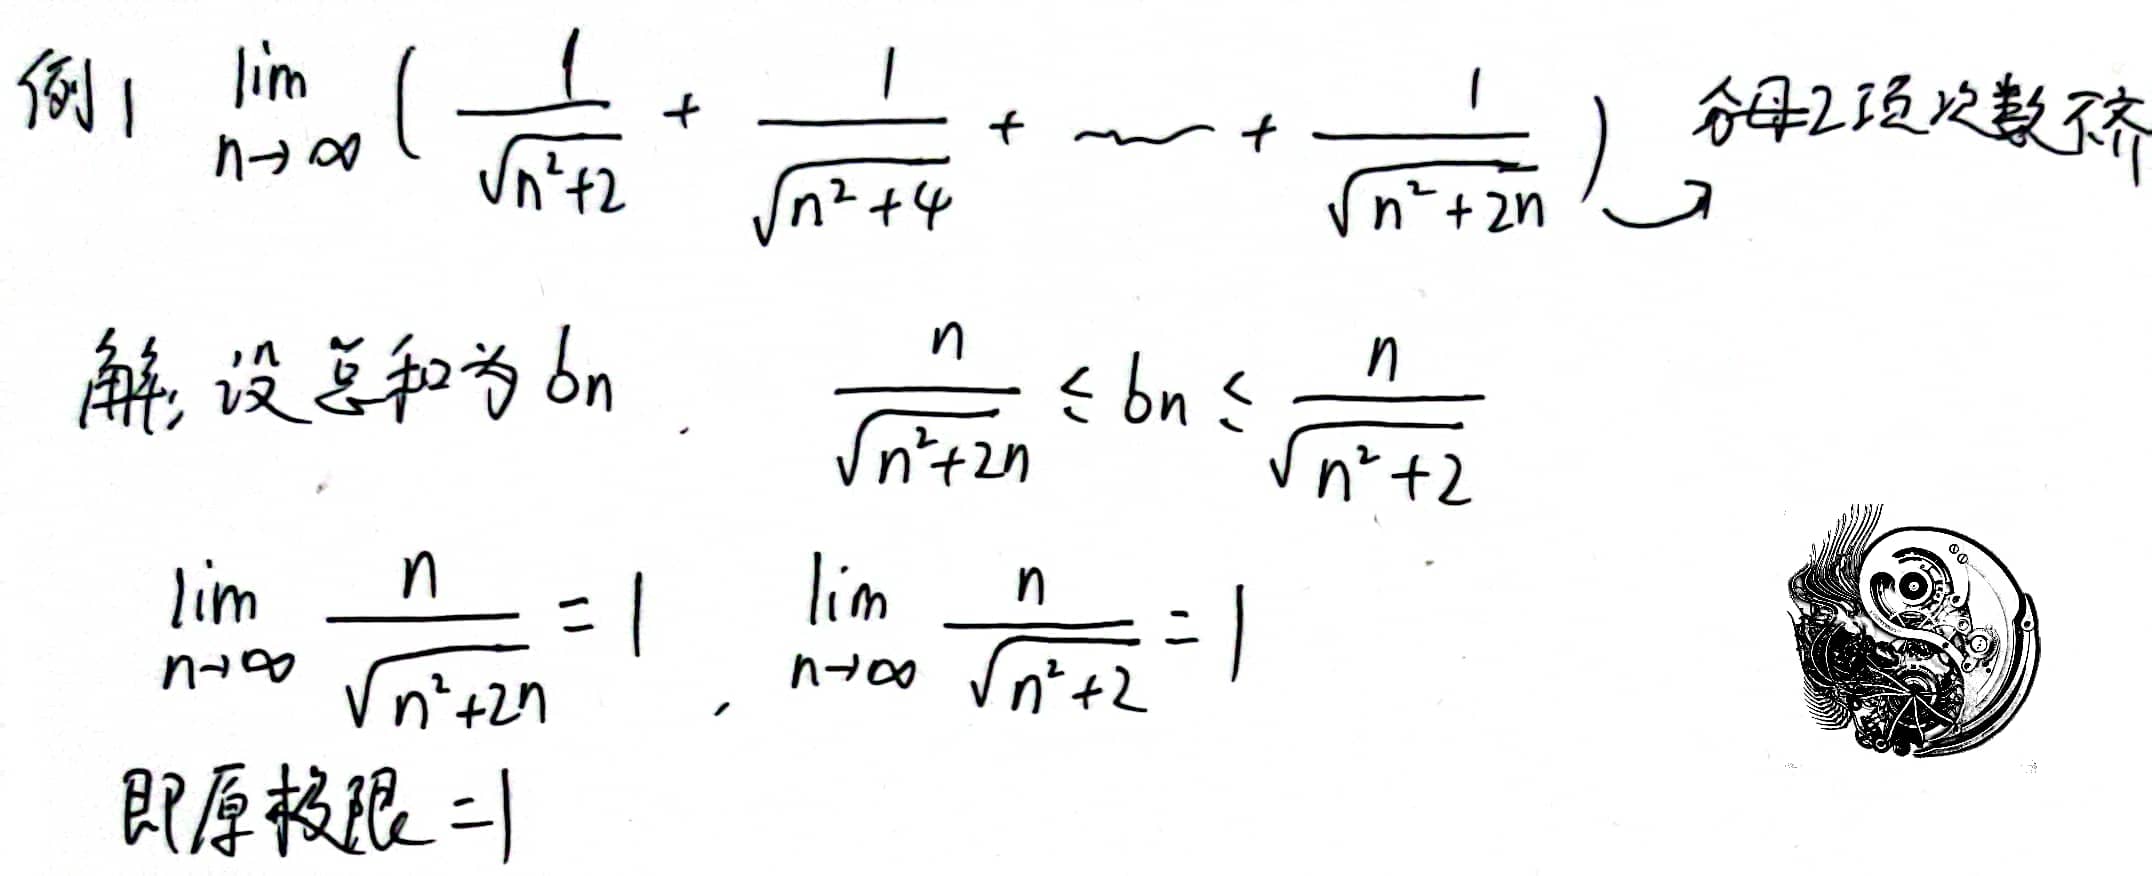 例1 lim n→∞ ( 1/√(n²+2) + 1/√(n²+4) + ~~ + 1/√(n²+2n) ) 分母2项次数不齐
解; 设总和为bn . n/√(n²+2n) ≤ bn ≤ n/√(n²+2)
lim n→∞ n/√(n²+2n) = 1 , lim n→∞ n/√(n²+2) = 1
即原极限=1